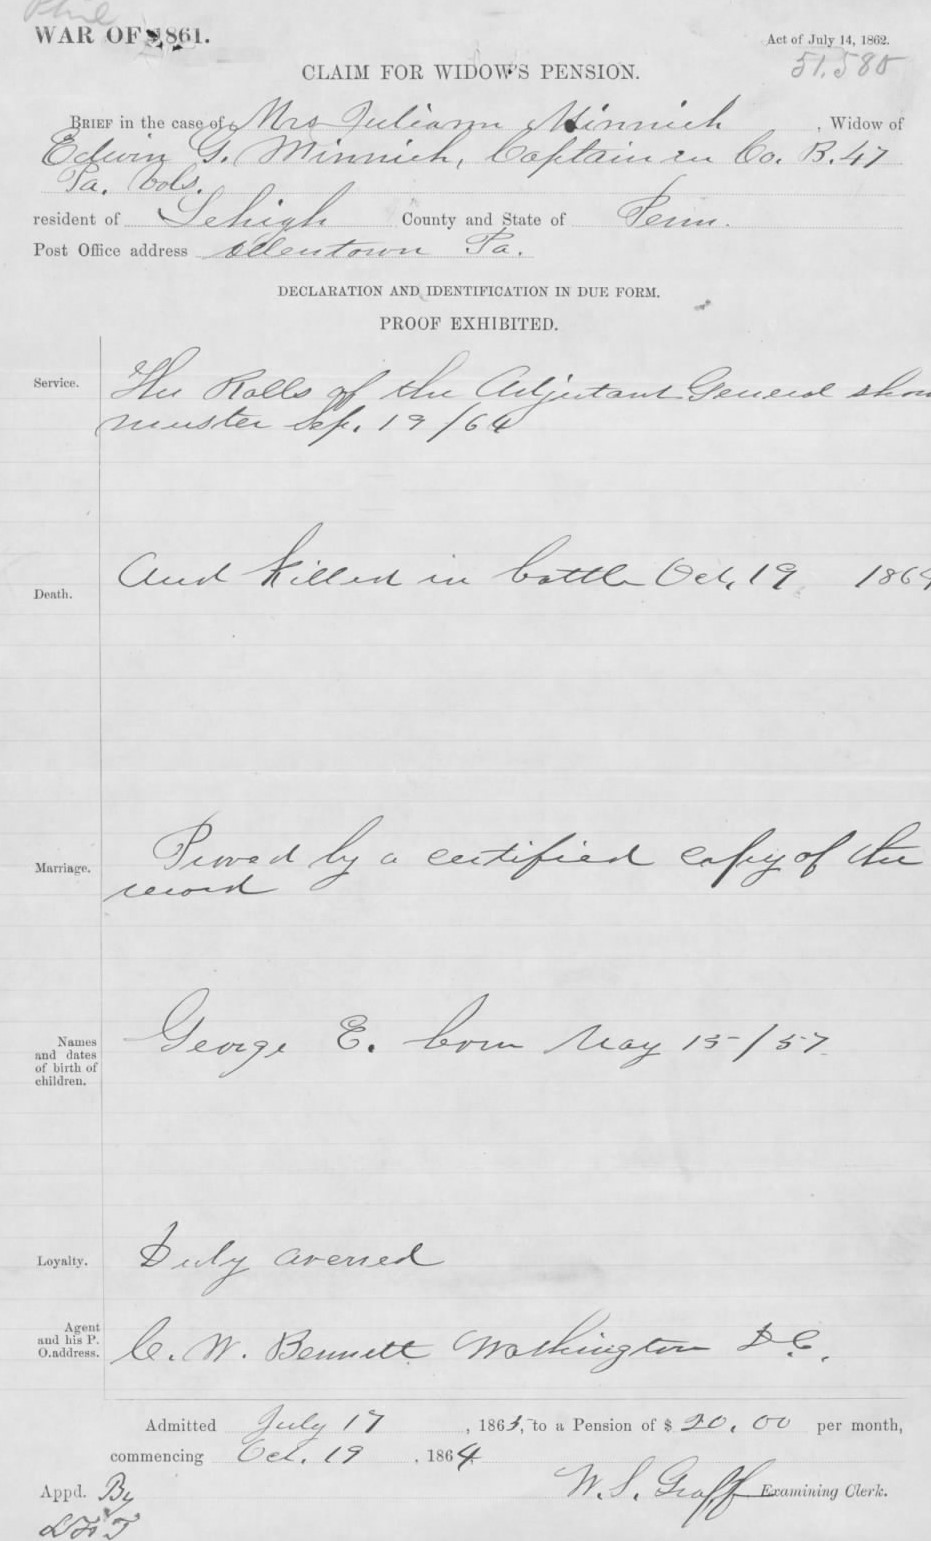 Phil
WAR OF 1861.
Act of July 14, 1862.
51.585
CLAIM FOR WIDOW'S PENSION.
BRIEF in the case of Mrs Juliann Minnich, Widow of
Edwin G. Minnich, Captain in Co. B. 47
Pa. Vols.
resident of Lehigh County and State of Penn.
Post Office address Allentown Pa.
DECLARATION AND IDENTIFICATION IN DUE FORM.
PROOF EXHIBITED.
Service. The Rolls of the Adjutant General show
muster Sep. 19/64
Death. And killed in battle Oct. 19 1864
Marriage. Proved by a certified copy of the
record
Names and dates of birth of children. George E. born May 15/57
Loyalty. Duly averred
Agent and his P. O. address. C. W. Bennett Washington D.C.
Admitted July 17, 1865, to a Pension of $ 20.00 per month,
commencing Oct. 19, 1864
W. S. Graff Examining Clerk.
Appd. By